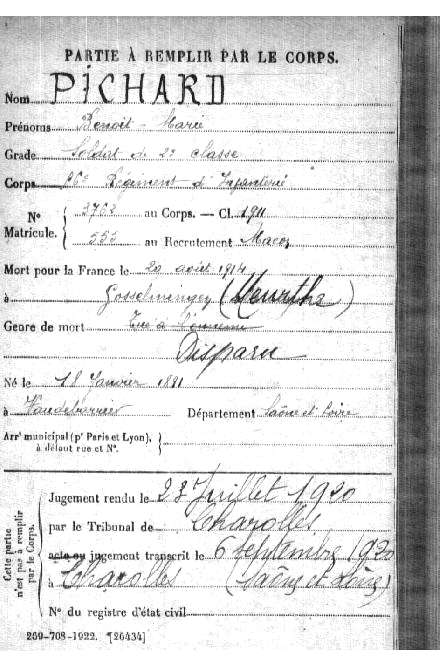 PARTIE À REMPLIR PAR LE CORPS.
Nom PICHARD
Prénoms Benoit - Marie
Grade Soldat de 2e classe
Corps Régiment d'Infanterie
N° Matricule. { 3763 au Corps. — Cl. 1911
553 au Recrutement Macon
Mort pour la France le 20 août 1914
à Gosselmingen (Meurthe)
Genre de mort Tué à l'ennemi
Disparu
Né le 18 Janvier 1891
à Vaudebarrier Département Saône et Loire
Arrt municipal (pr Paris et Lyon), à défaut rue et N°. }
Cette partie n'est pas à remplir par le Corps.
Jugement rendu le 23 Juillet 1920
par le Tribunal de Charolles
acte ou jugement transcrit le 6 septembre 1920
à Charolles (Saône et Loire)
N° du registre d'état civil
269-708-1922. [26434]